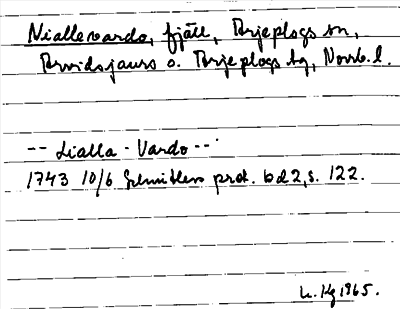 Niallevardo, fjäll, Arjeplogs sn,
Arvidsjaurs o. Arjeplogs tg, Norrb. l.
-- Lialla - Vardo --
1743 10/6 Schnitlers prot. bd 2, s. 122.
L. Hg 1965.